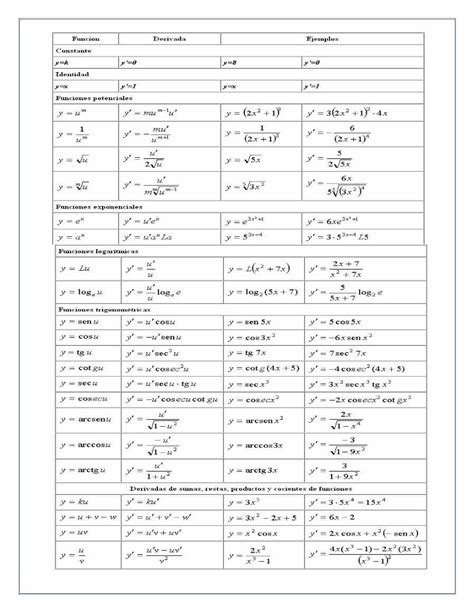 Funcion Derivada Ejemplos
Constante
y=k y'=0 y=8 y'=0
Identidad
y=x y'=1 y=x y'=1
Funciones potenciales
y = u^m y' = mu^{m-1}u' y = (2x² + 1)³ y' = 3(2x² + 1)²·4x
y = 1/u^m y' = - mu'/u^{m+1} y = 1/(2x + 1)³ y' = - 6/(2x + 1)⁴
y = √u y' = u'/2√u y = √5x y' = 5/2√5x
y = ᵐ√u y' = u'/m ᵐ√u^{m-1} y = ⁵√3x² y' = 6x/5 ⁵√(3x²)⁴
Funciones exponenciales
y = e^u y' = u'e^u y = e^{3x²+1} y' = 6xe^{3x²+1}
y = a^u y' = u'a^u La y = 5^{3x-4} y' = 3·5^{3x-4} L5
Funciones logarítmicas
y = Lu y' = u'/u y = L(x² + 7x) y' = 2x + 7/x² + 7x
y = log_a u y' = u'/u log_a e y = log₂(5x + 7) y' = 5/5x + 7 log₂ e
Funciones trigonométricas
y = sen u y' = u'cosu y = sen 5x y' = 5 cos 5x
y = cosu y' = -u'sen u y = cos 3x² y' = -6x sen x²
y = tg u y' = u'sec² u y = tg 7x y' = 7 sec² 7x
y = cot gu y' = u'cosec² u y = cotg(4x + 5) y' = -4 cosec²(4x + 5)
y = secu y' = u'secu·tgu y = sec x³ y' = 3x² sec x³ tg x³
y = cosecu y' = -u'cosecu cotgu y = cosecx² y' = -2x cosecx² cotgx²
y = arcsenu y' = u'/√1-u² y = arcsenx² y' = 2x/√1-x⁴
y = arccosu y' = -u'/√1-u² y = arccos3x y' = -3/√1-9x²
y = arctgu y' = u'/1+u² y = arctg 3x y' = 3/1+9x²
Derivadas de sumas, restas, productos y cocientes de funciones
y = ku y' = ku' y = 3x⁵ y' = 3·5x⁴ = 15x⁴
y = u + v - w y' = u' + v' - w' y = 3x² - 2x + 5 y' = 6x - 2
y = uv y' = u'v + uv' y = x² cosx y' = 2x cosx + x²(- sen x)
y = u/v y' = u'v - uv'/v² y = 2x²/x³ - 1 y' = 4x(x³ - 1) - 2x²(3x²)/(x³ - 1)²